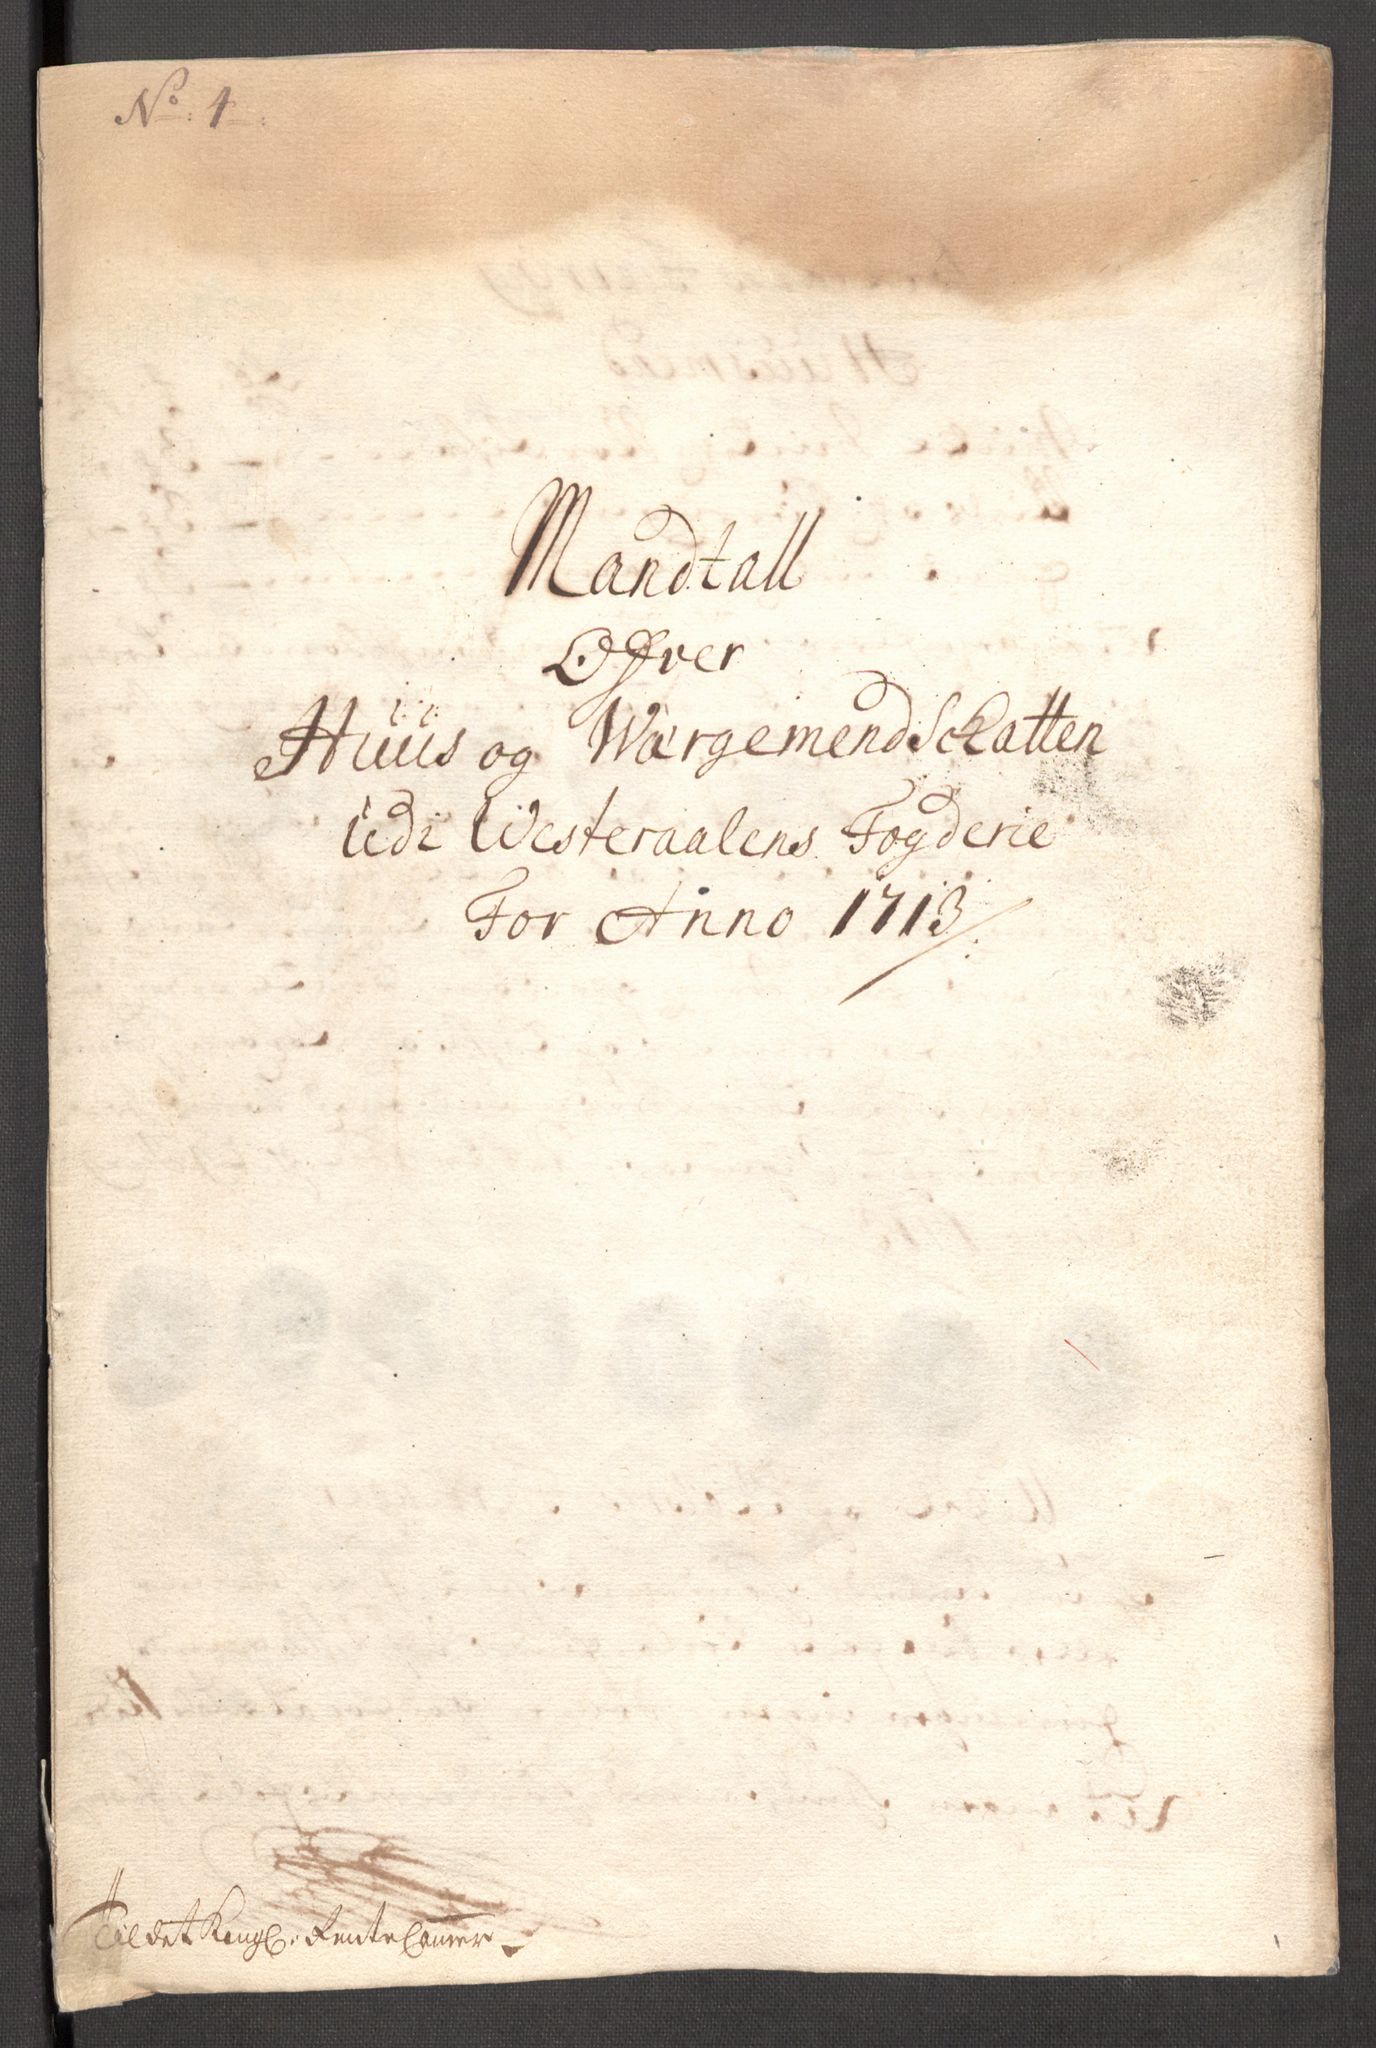 No: 1
Mandtall
Offver
Huus og WærgemendSchatten
udi Westeraalens Fogderie
For Anno 1713
Til det Kongl. RenteCammer